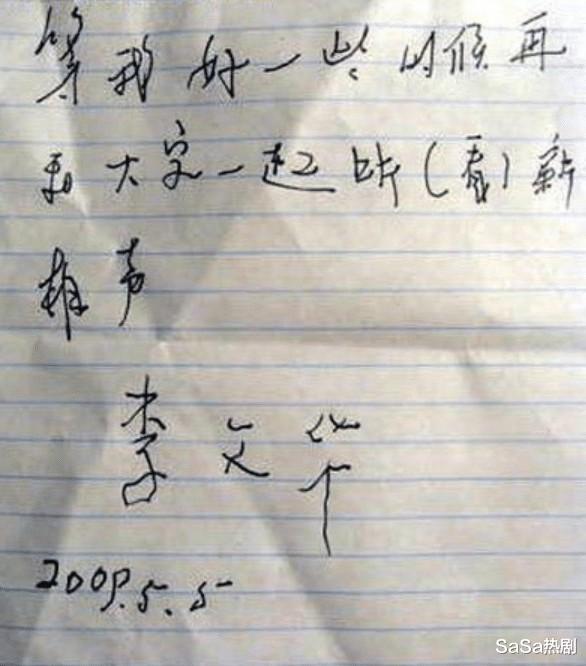 等我好一些的候再
和大家一起听(看)新
相声
李文华
2009.5.5
SaSa热剧